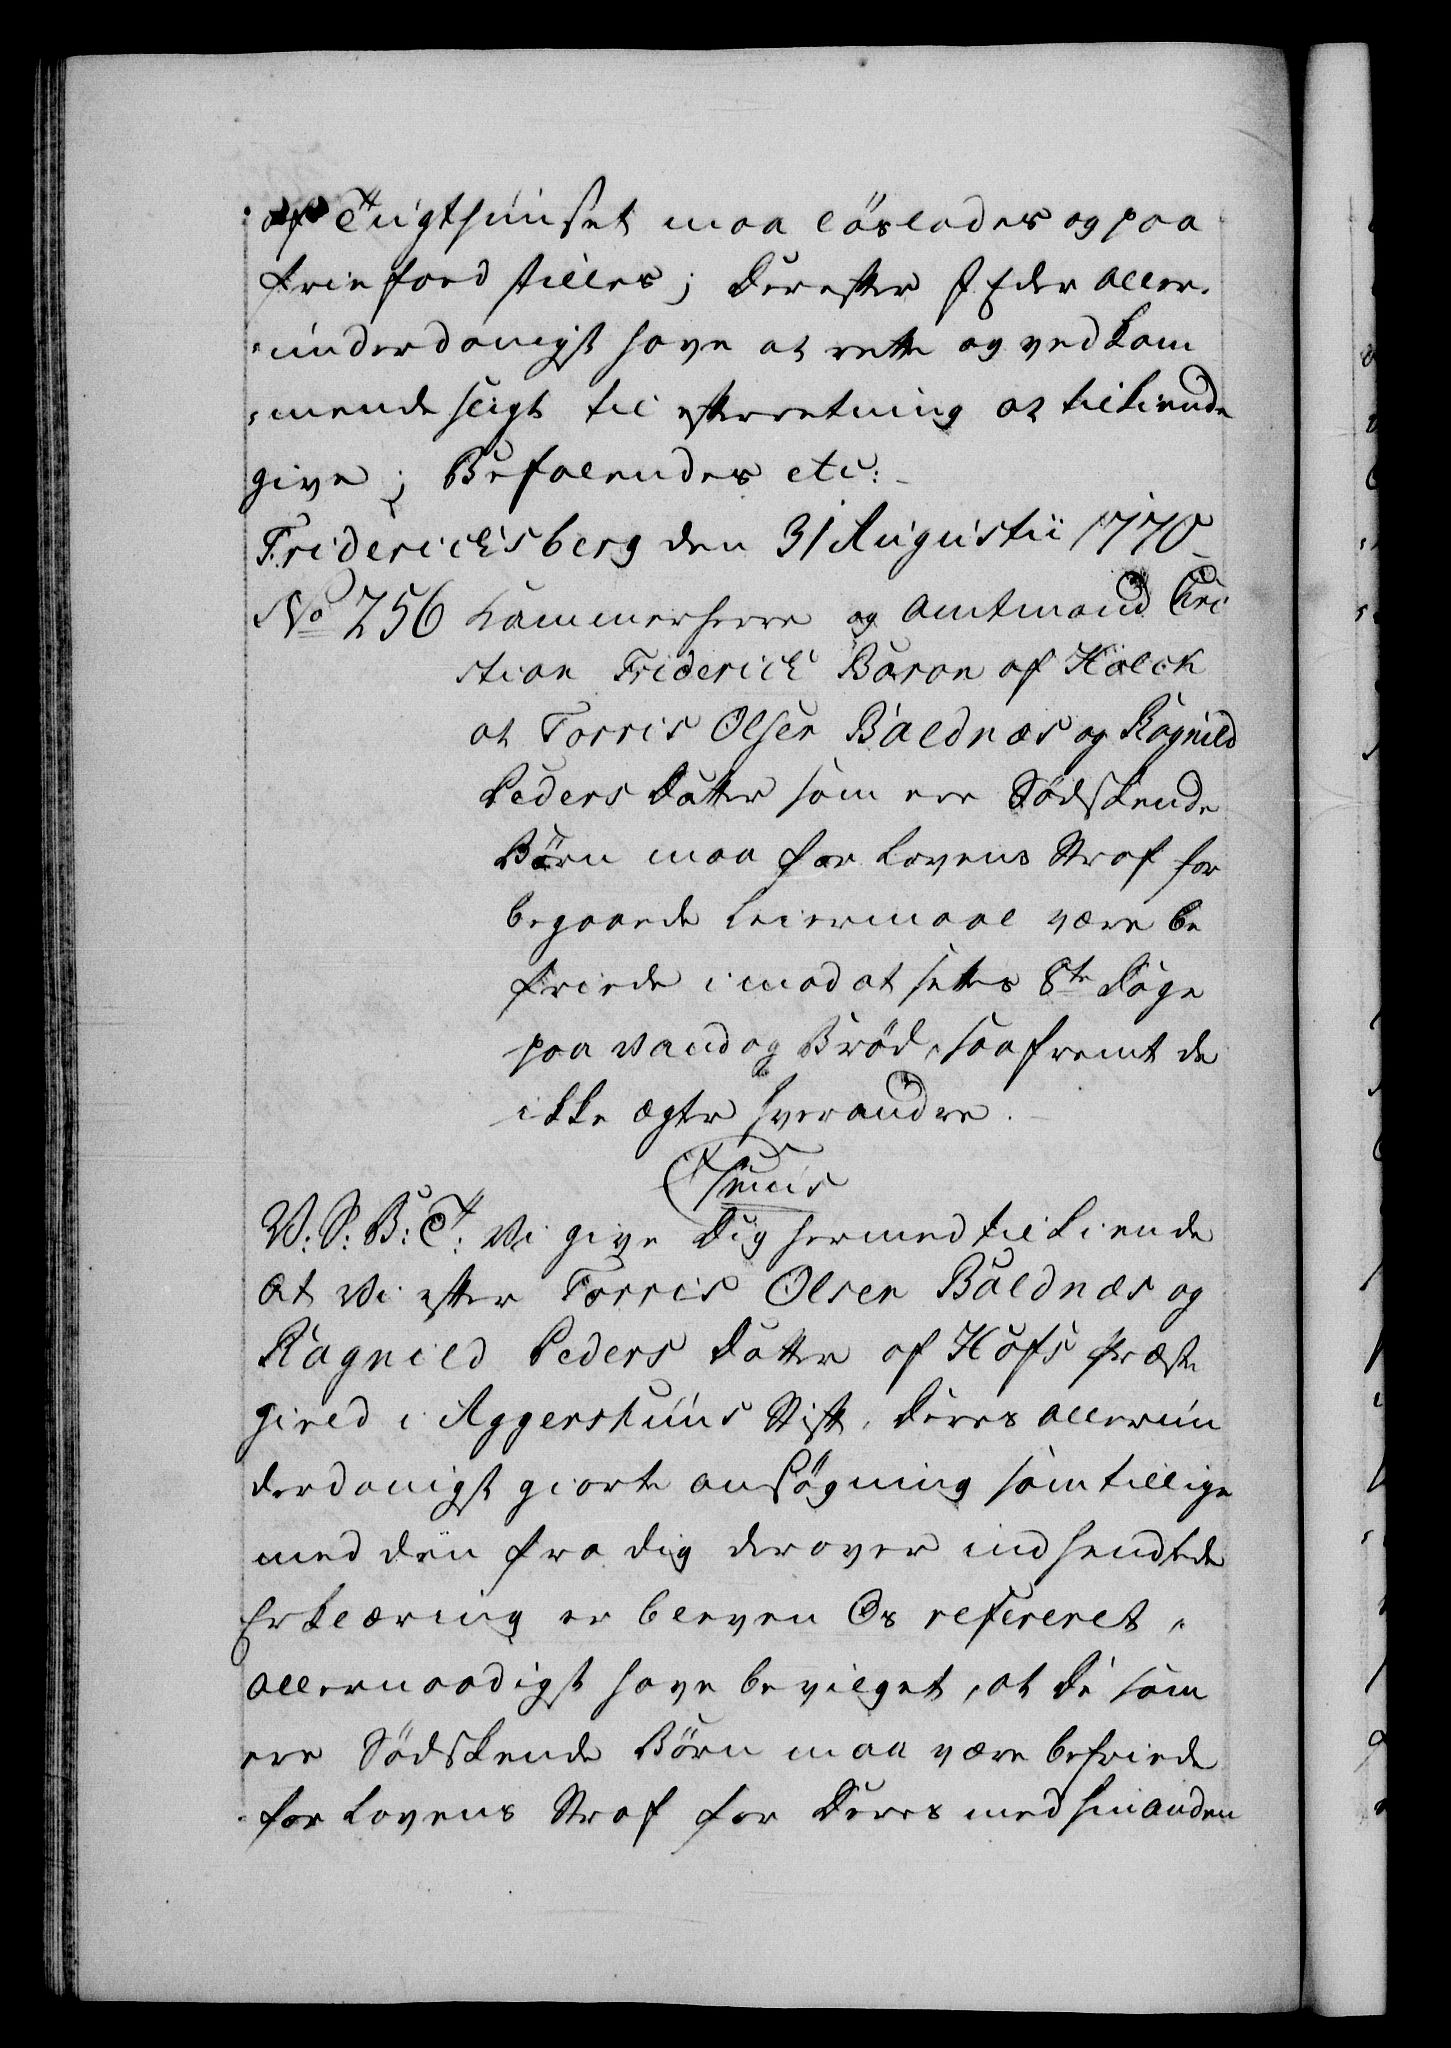 af Tugthuuset maa löslades og paa
friefoed stilles; Derefter I Eder aller-
-underdanigst have at rette og vedkom
-mende sligt til efterretning at tilkiende
give; Befalendes etc:
Friderichsberg den 31 Augustii 1770
No 256 Kammerherre og Amtmand Chri
stian Friderich Baron af Holck
at Torris Olsen Baldnæs og Ragnild
Peders Datter som ere Sødskende
Börn maa for Lovens Straf for
begaaede Leiermaal være be
friede imod at settes 8te Dage
paa Vand og Bröd, saafremt de
ikke ægte hverandre.
V: S: B: T: Vi give Dig hermed tilkiende
At Vi efter Torris Olsen Baldnæs og
Ragnild Peders Datter af Hofs Præste
gield i Aggershuus Stift, Deres allerun
derdanigst giorte ansögning som tillige
med den fra dig derover indsendte
Erklæring er bleven Os refereret,
allernaadigst have bevilget, at De som
ere Södskende Börn maa være befriede
for Lovens Straf for Deres med hinanden